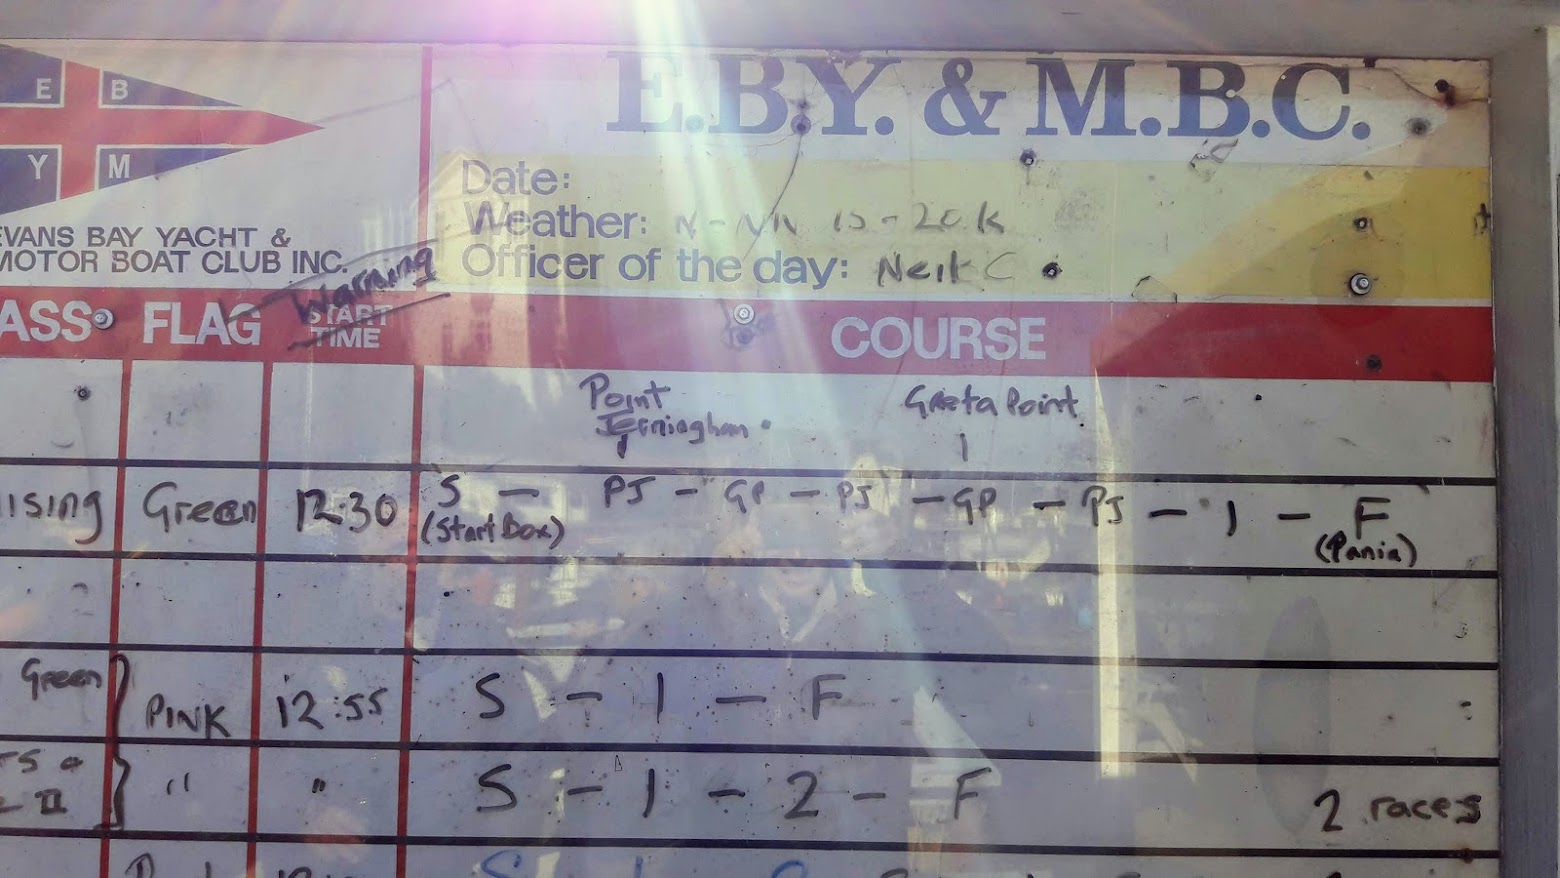 E B
Y M
E.B.Y. & M.B.C.
EVANS BAY YACHT &
MOTOR BOAT CLUB INC.
Date:
Weather: 15-20k
Officer of the day: Neil C
Warning
ASS FLAG START TIME COURSE
Point Jerningham Greta Point
ising Green 12.30 S - PJ - GP - PJ - GP - PJ - 1 - F
(Start Box) (Pania)
Green PINK 12:55 S - 1 - F
II " " S - 1 - 2 - F 2 races